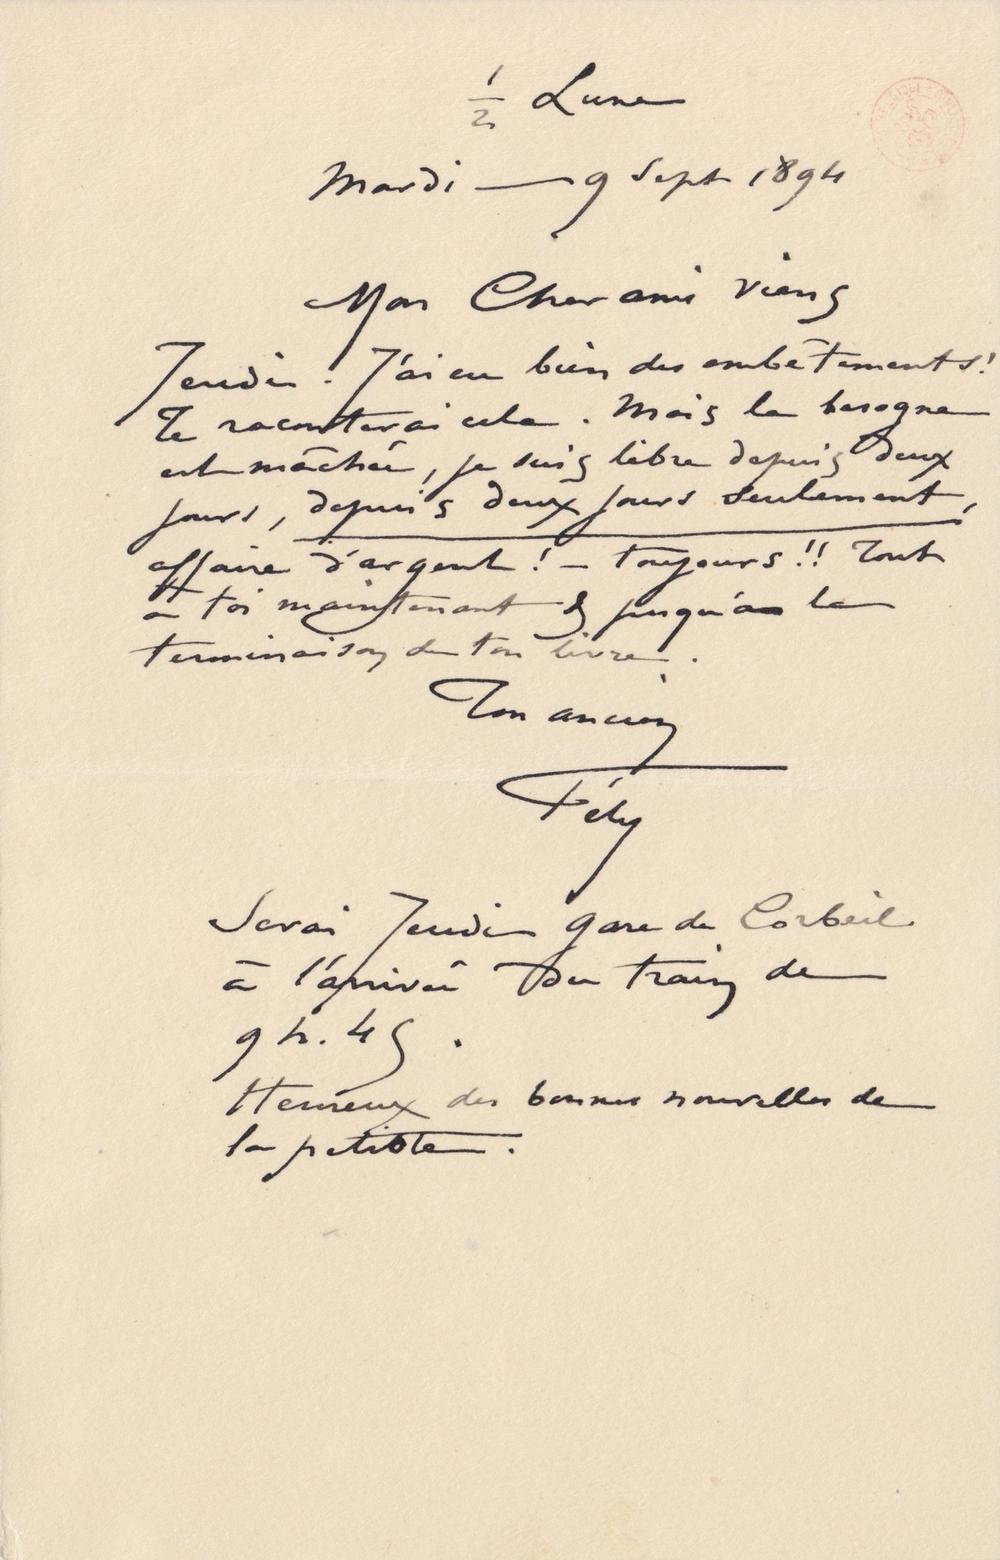 1/2 Lune
Mardi — 9 Sept 1894
Mon Cher ami viens
Jeudi. J'ai eu bien des embêtements!
Te raconterai cela. Mais la besogne
est mâchée, je suis libre depuis deux
jours, depuis deux jours seulement,
affaire d'argent! — toujours!! Tout
à toi maintenant & jusqu'à la
terminaison de ton livre.
Ton ancien
Fély
Serai Jeudi gare de Corbeil
à l'arrivée du train de
9 h. 45.
Heureux des bonnes nouvelles de
la petiote.